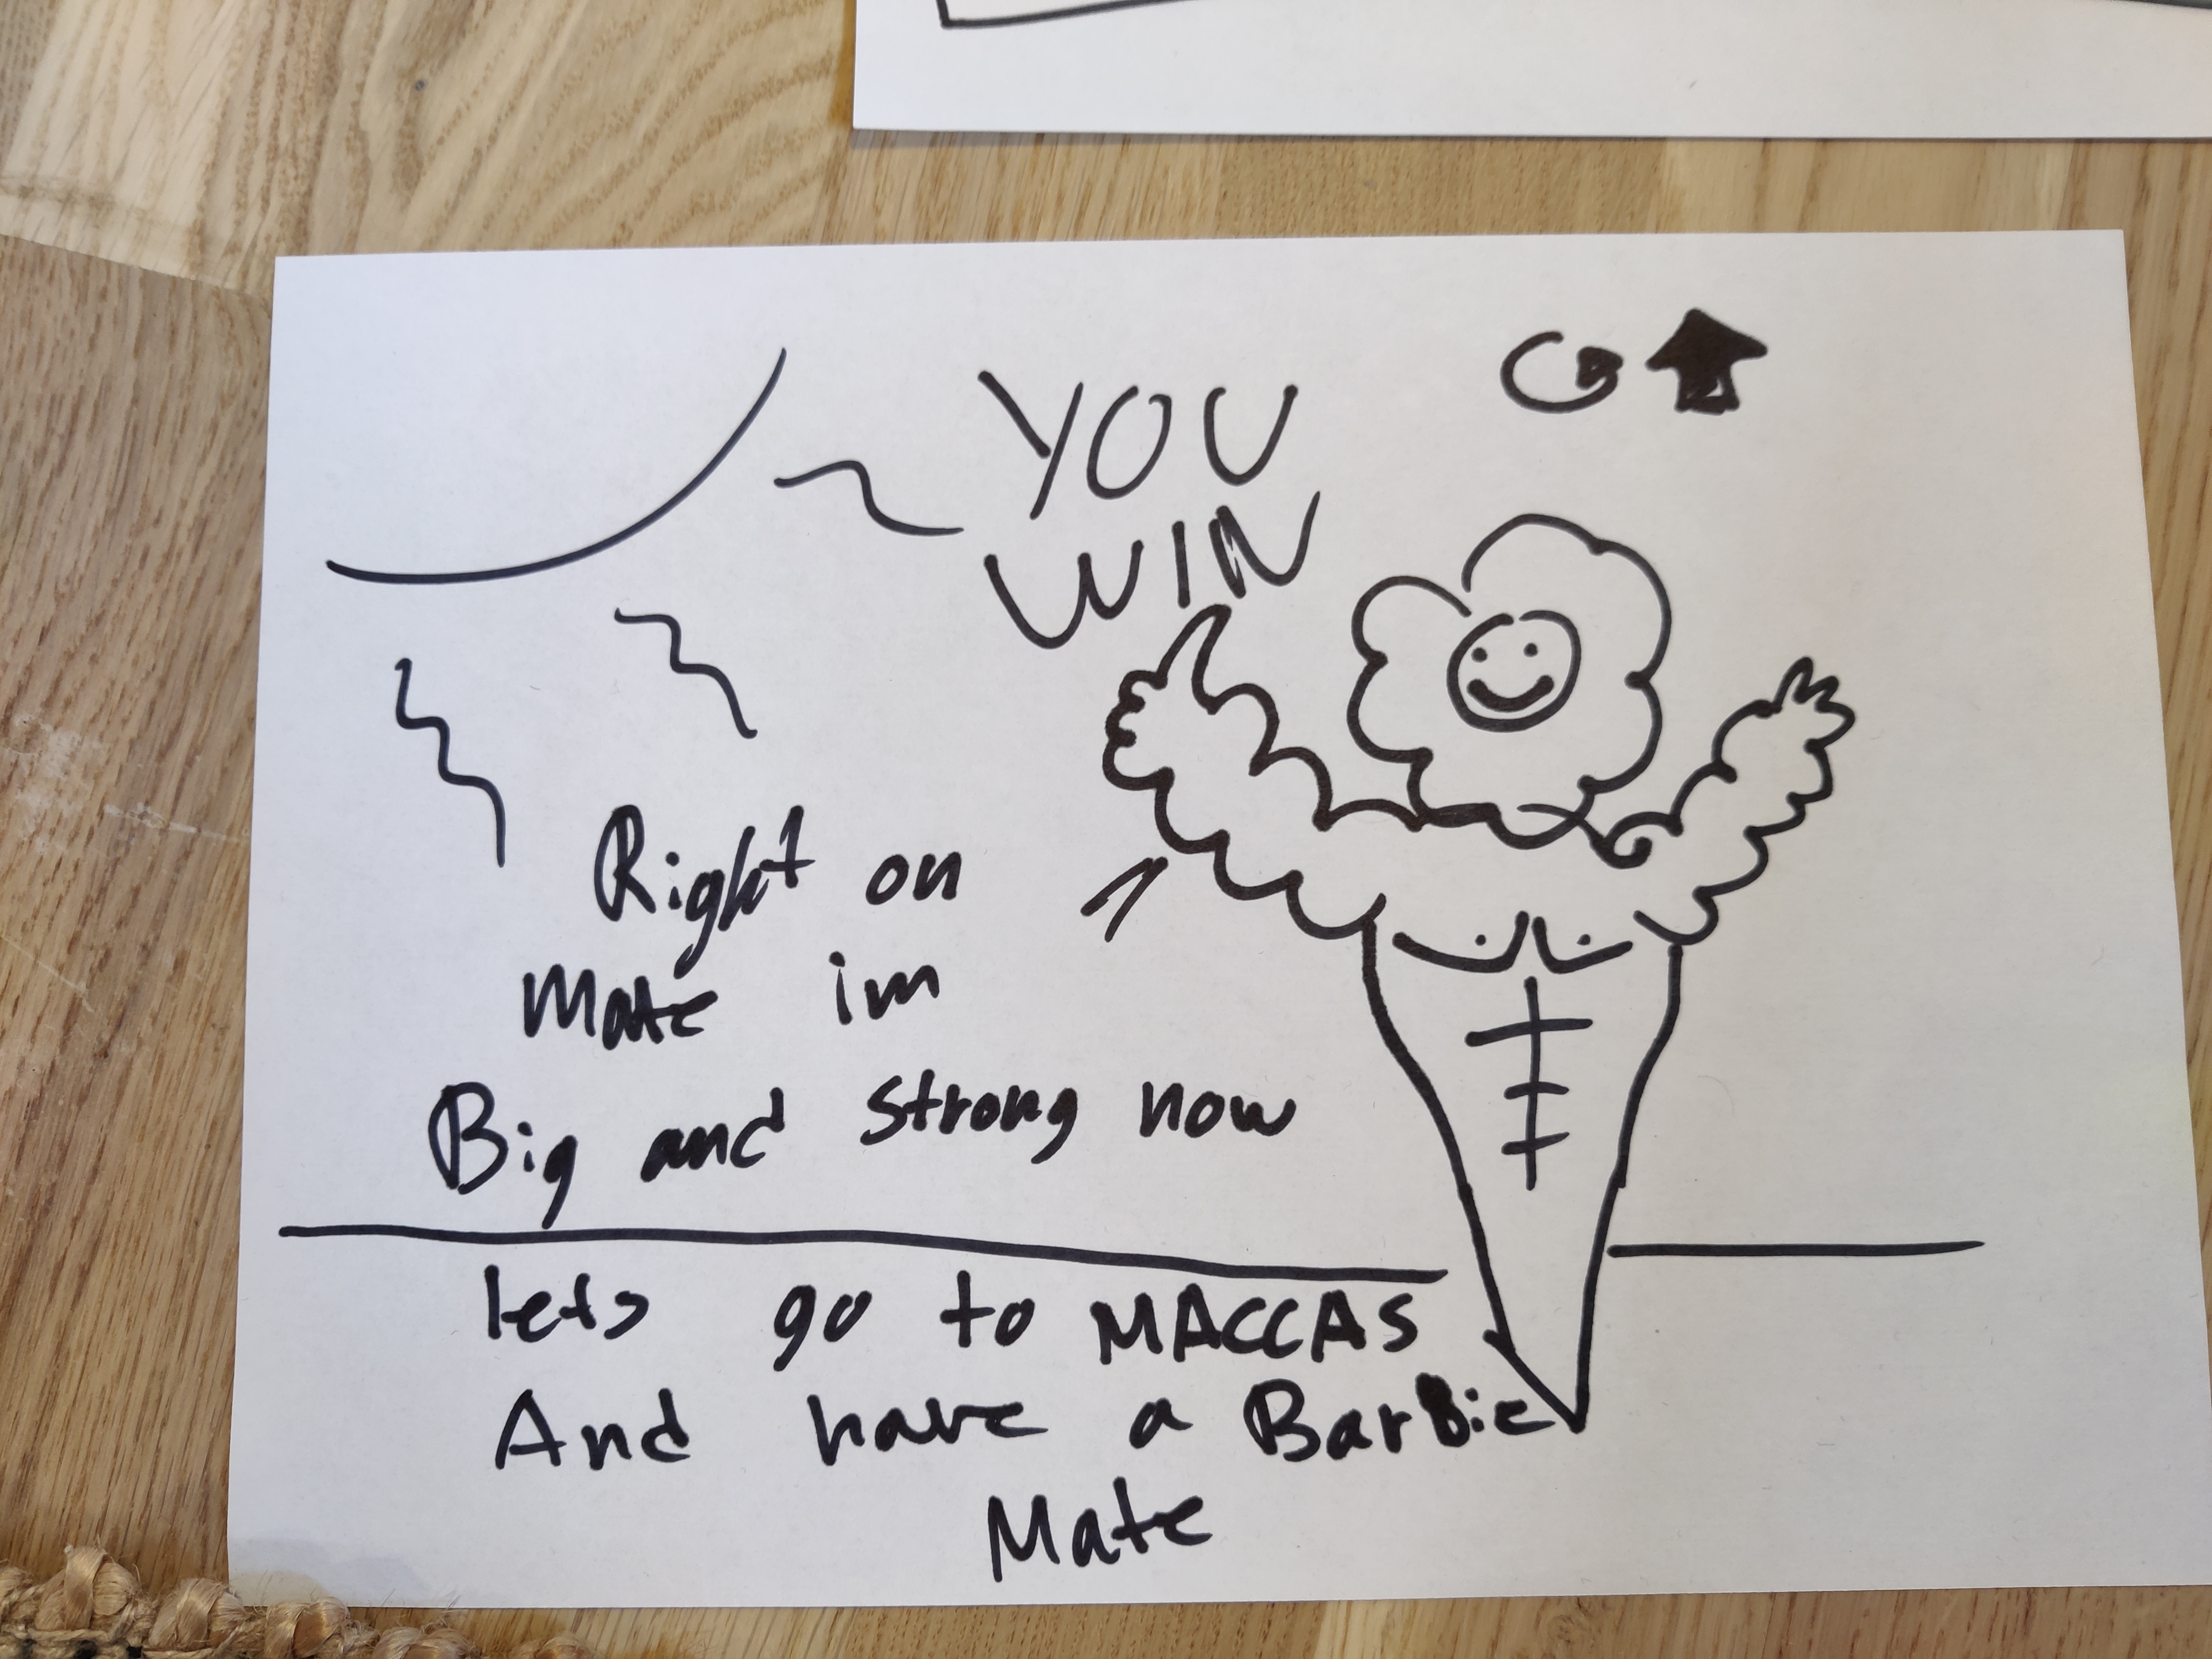 YOU
WIN
Right on
Mate im
Big and strong now
lets go to MACCAS
And have a Barbie
Mate